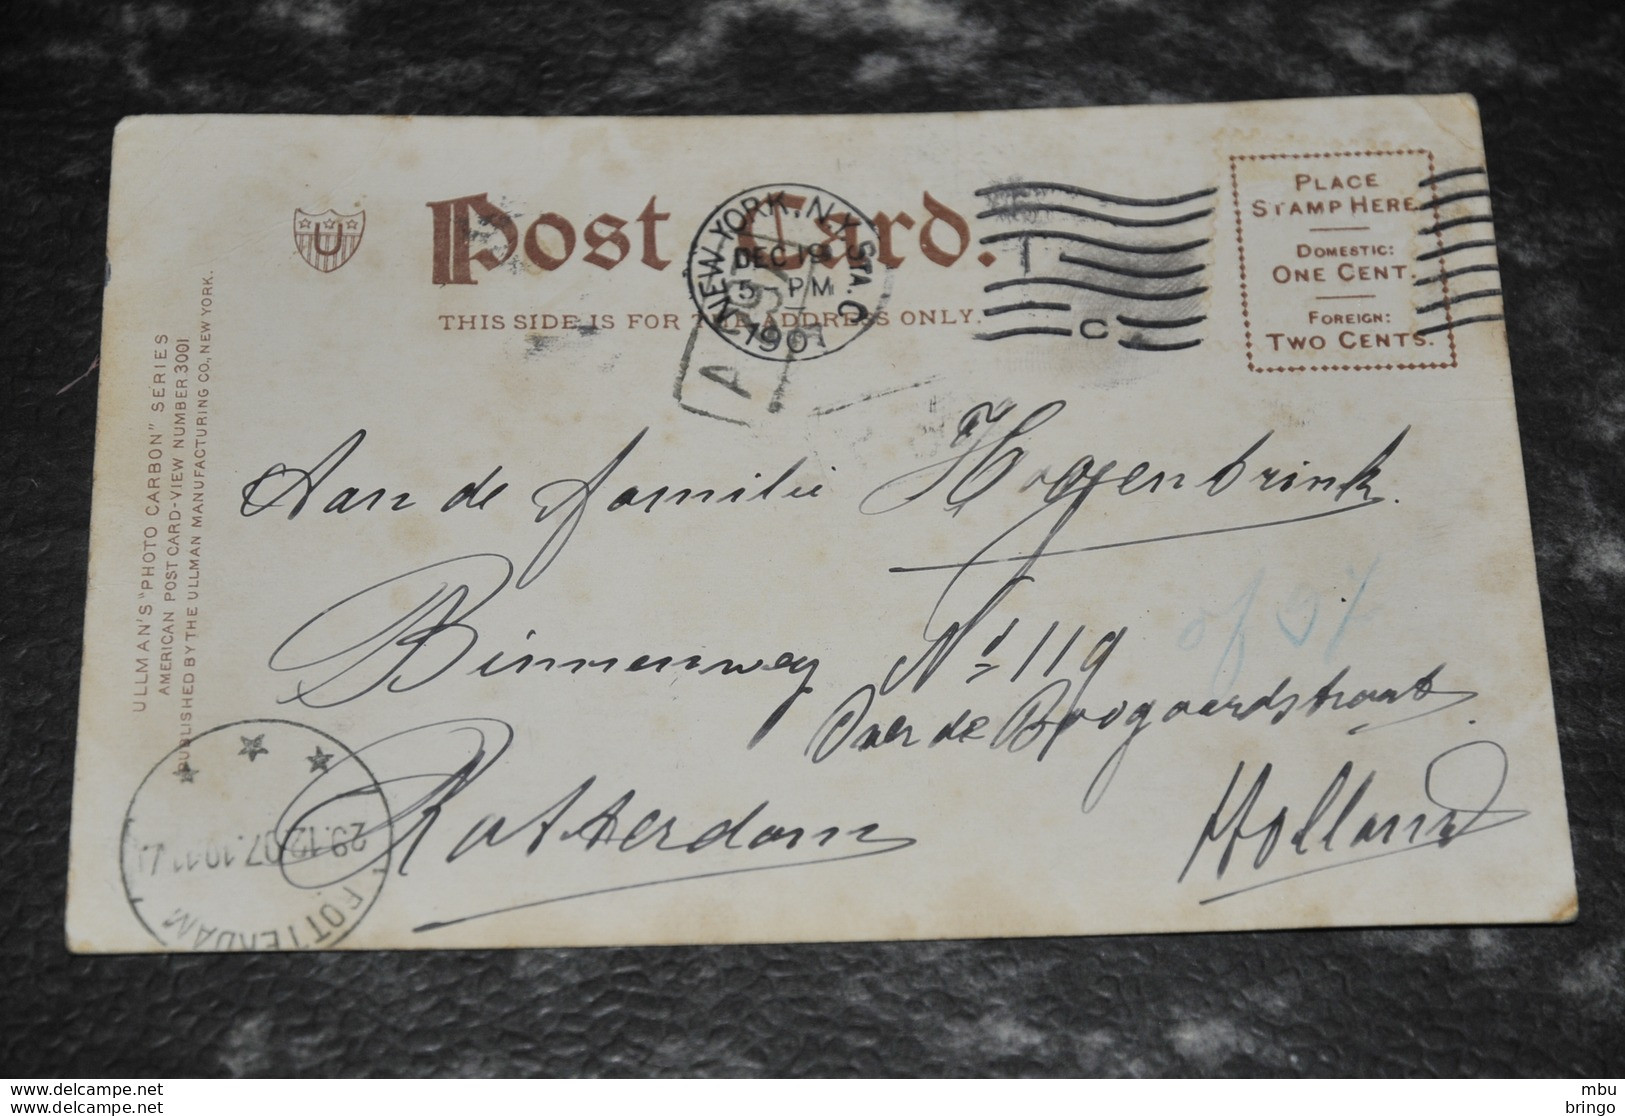 Post Card.
THIS SIDE IS FOR THE ADDRESS ONLY.
U
NEW YORK, N.Y. STA. C
DEC 19
5-PM
1907
A
C
PLACE
STAMP HERE
DOMESTIC:
ONE CENT.
FOREIGN:
TWO CENTS.
ULLMAN'S "PHOTO CARBON" SERIES
AMERICAN POST CARD-VIEW NUMBER 3001
PUBLISHED BY THE ULLMAN MANUFACTURING CO., NEW YORK.
Aan de Familie Hoogenbrink.
Binnenweg No 119
Over de Boogaardstraat
Rotterdam
Holland
ROTTERDAM
29.12.07.
www.delcampe.net
www.delcampe.net
mbu
bringo